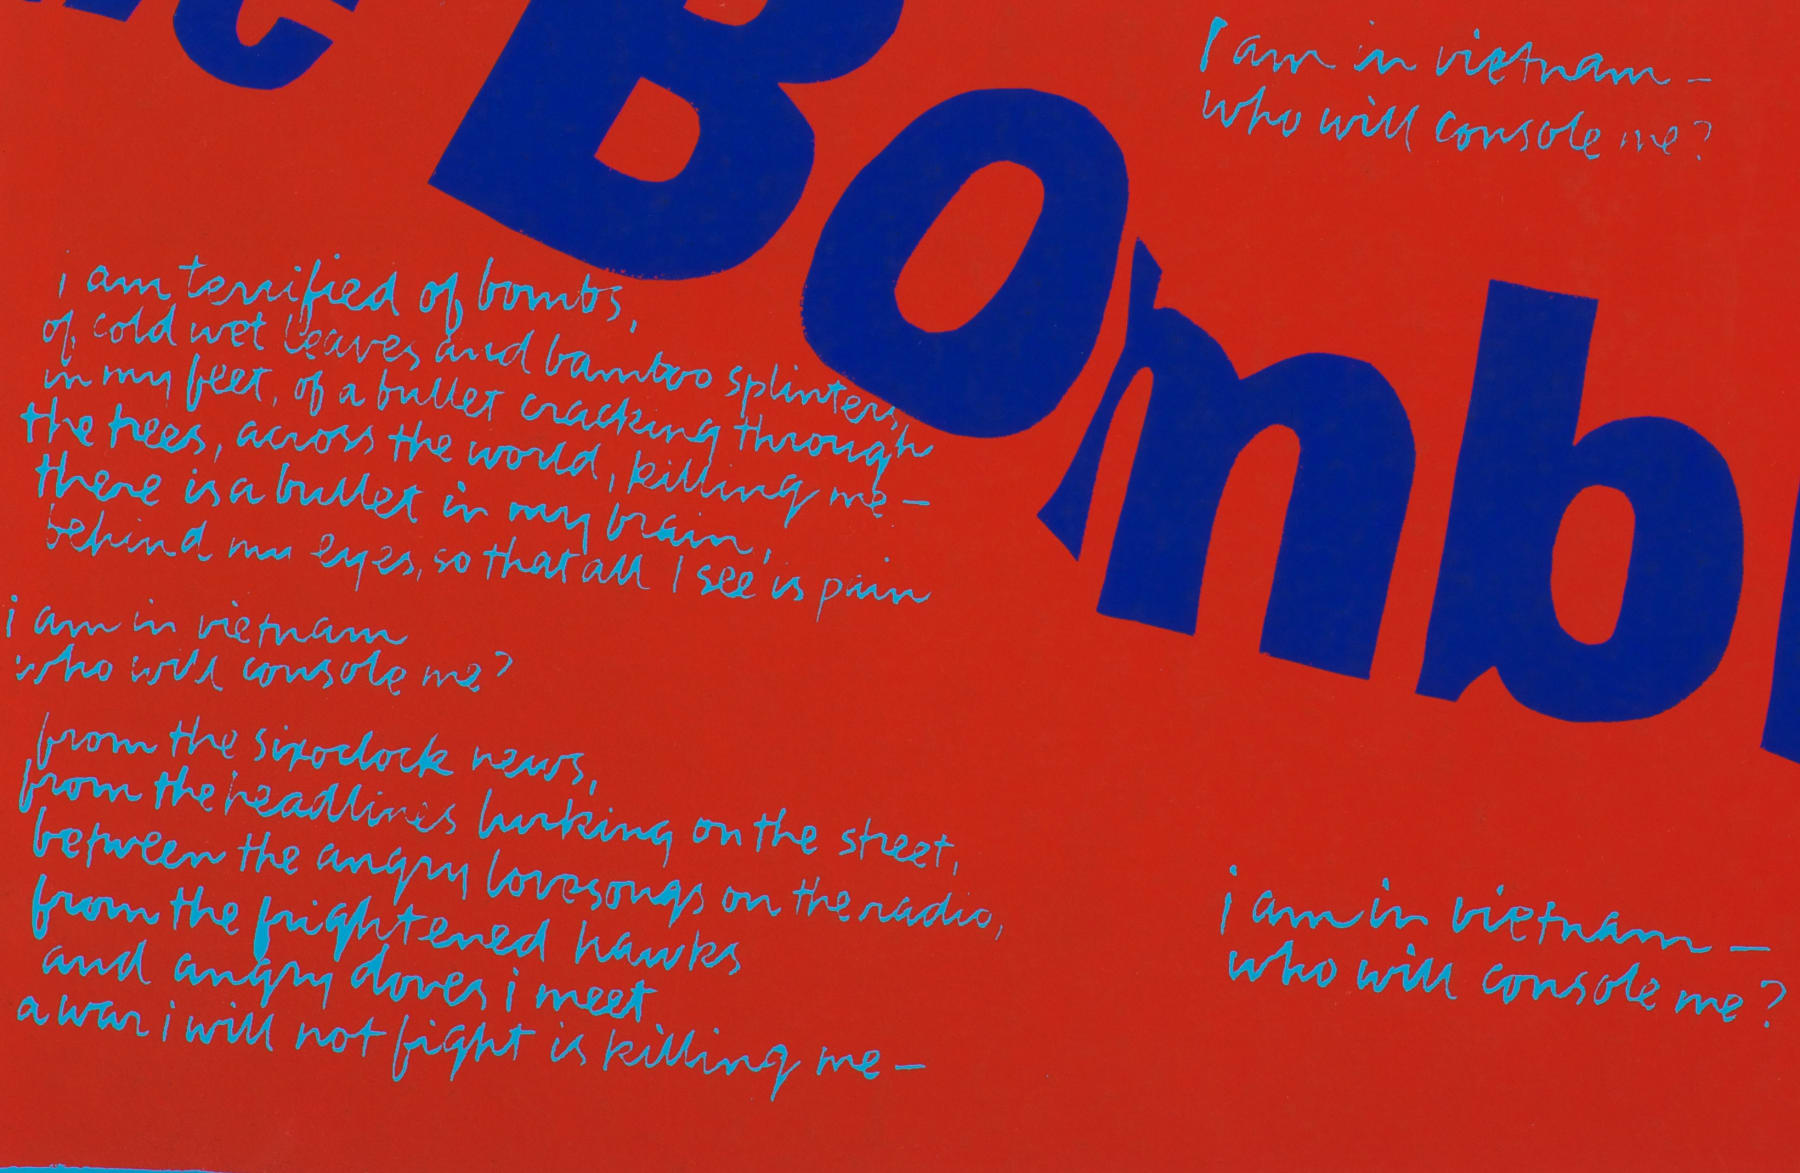 Bomb
I am in vietnam –
who will console me?
i am terrified of bombs,
of cold wet leaves and bamboo splinters,
in my feet, of a bullet cracking through
the trees, across the world, killing me –
there is a bullet in my brain,
behind my eyes, so that all I see is pain
i am in vietnam
who will console me?
from the sixoclock news,
from the headlines lurking on the street,
between the angry lovesongs on the radio,
from the frightened hawks
and angry doves i meet
a war i will not fight is killing me –
i am in vietnam –
who will console me?